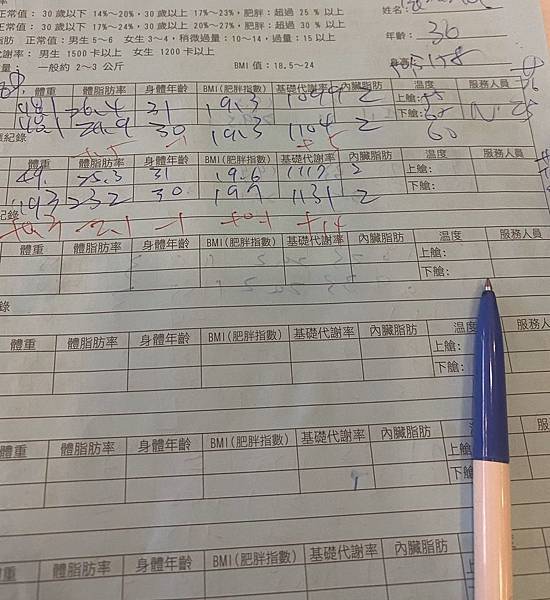 正常值： 30 歲以下 14%~20%，30 歲以上 17%~23%，肥胖：超過 25 % 以上
正常值： 30 歲以下 17%~24%，30 歲以上 20%~27%，肥胖：超過 30 % 以上
脂肪 正常值：男生 5~6 女生 3~4，稍微過量：10~14，過量：15 以上
代謝率： 男生 1500 卡以上 女生 1200 卡以上
量： 一般約 2~3 公斤 BMI 值：18.5~24
姓名：
年齡： 36
身高： 158
體重 體脂肪率 身體年齡 BMI(肥胖指數) 基礎代謝率 內臟脂肪 溫度 服務人員
48.1 26.4 31 19.3 1099 2 上艙：55
48.1 25.9 30 19.3 1104 2 下艙：60
60
紀錄 +5
體重 體脂肪率 身體年齡 BMI(肥胖指數) 基礎代謝率 內臟脂肪 溫度 服務人員
49. 25.3 31 19.6 1117 2 上艙：
49.3 23.2 30 19.7 1131 2 下艙：
紀錄 +0.3 -2.1 -1 +0.1 +14
體重 體脂肪率 身體年齡 BMI(肥胖指數) 基礎代謝率 內臟脂肪 溫度 服務人員
上艙：
下艙：
錄
體重 體脂肪率 身體年齡 BMI(肥胖指數) 基礎代謝率 內臟脂肪 溫度 服務人
上艙：
下艙：
體重 體脂肪率 身體年齡 BMI(肥胖指數) 基礎代謝率 內臟脂肪 服
上艙
下艙
體重 體脂肪率 身體年齡 BMI(肥胖指數) 基礎代謝率 內臟脂肪
上
下